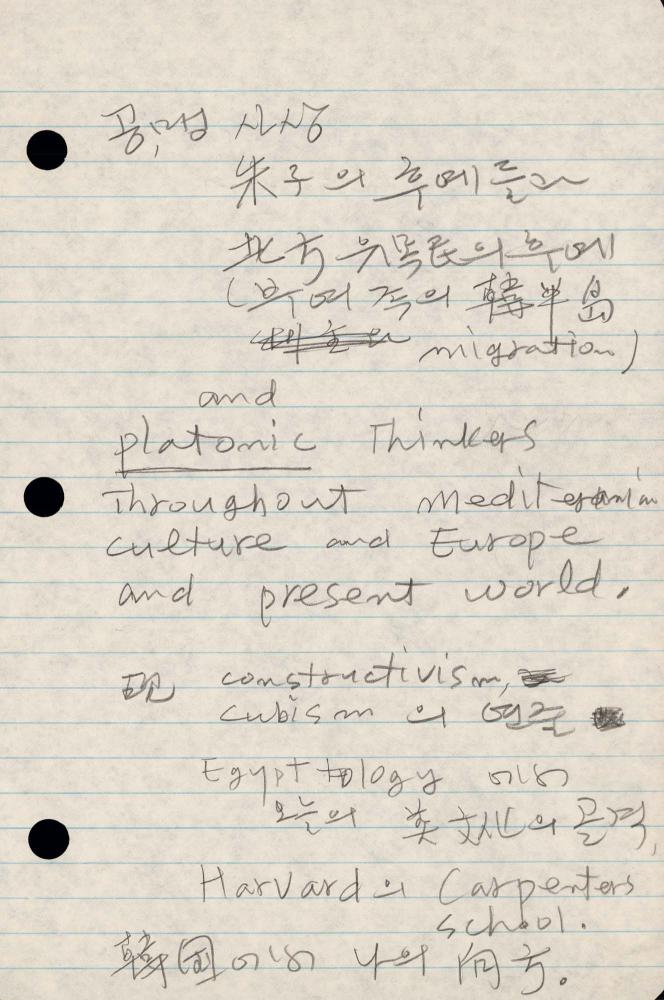 공,맹 사상
朱子의 후예들과
北方 유목民의 후예
(부여족의 韓半島
migration)
and
platonic Thinkers
Throughout mediteranian
culture and Europe
and present world.
현 constructivism,
cubism 의
Egyptology 에서
오늘의 英 文化의 골격,
Harvard의 Carpenters
school.
韓國에서 나의 向方.